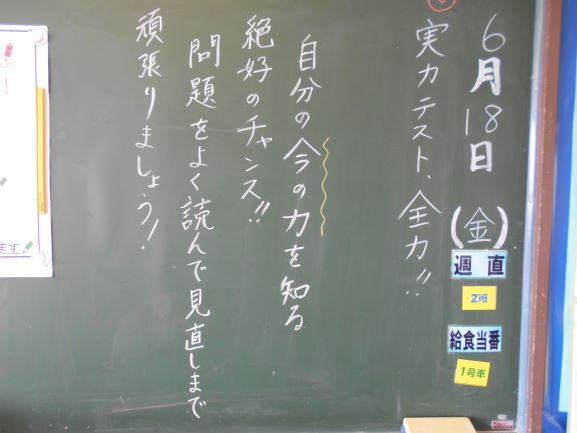 6月18日(金)
週直
2班
給食当番
1号車
実力テスト、全力!!
自分の今の力を知る
絶好のチャンス!!
問題をよく読んで見直しまで
頑張りましょう!
!
ます